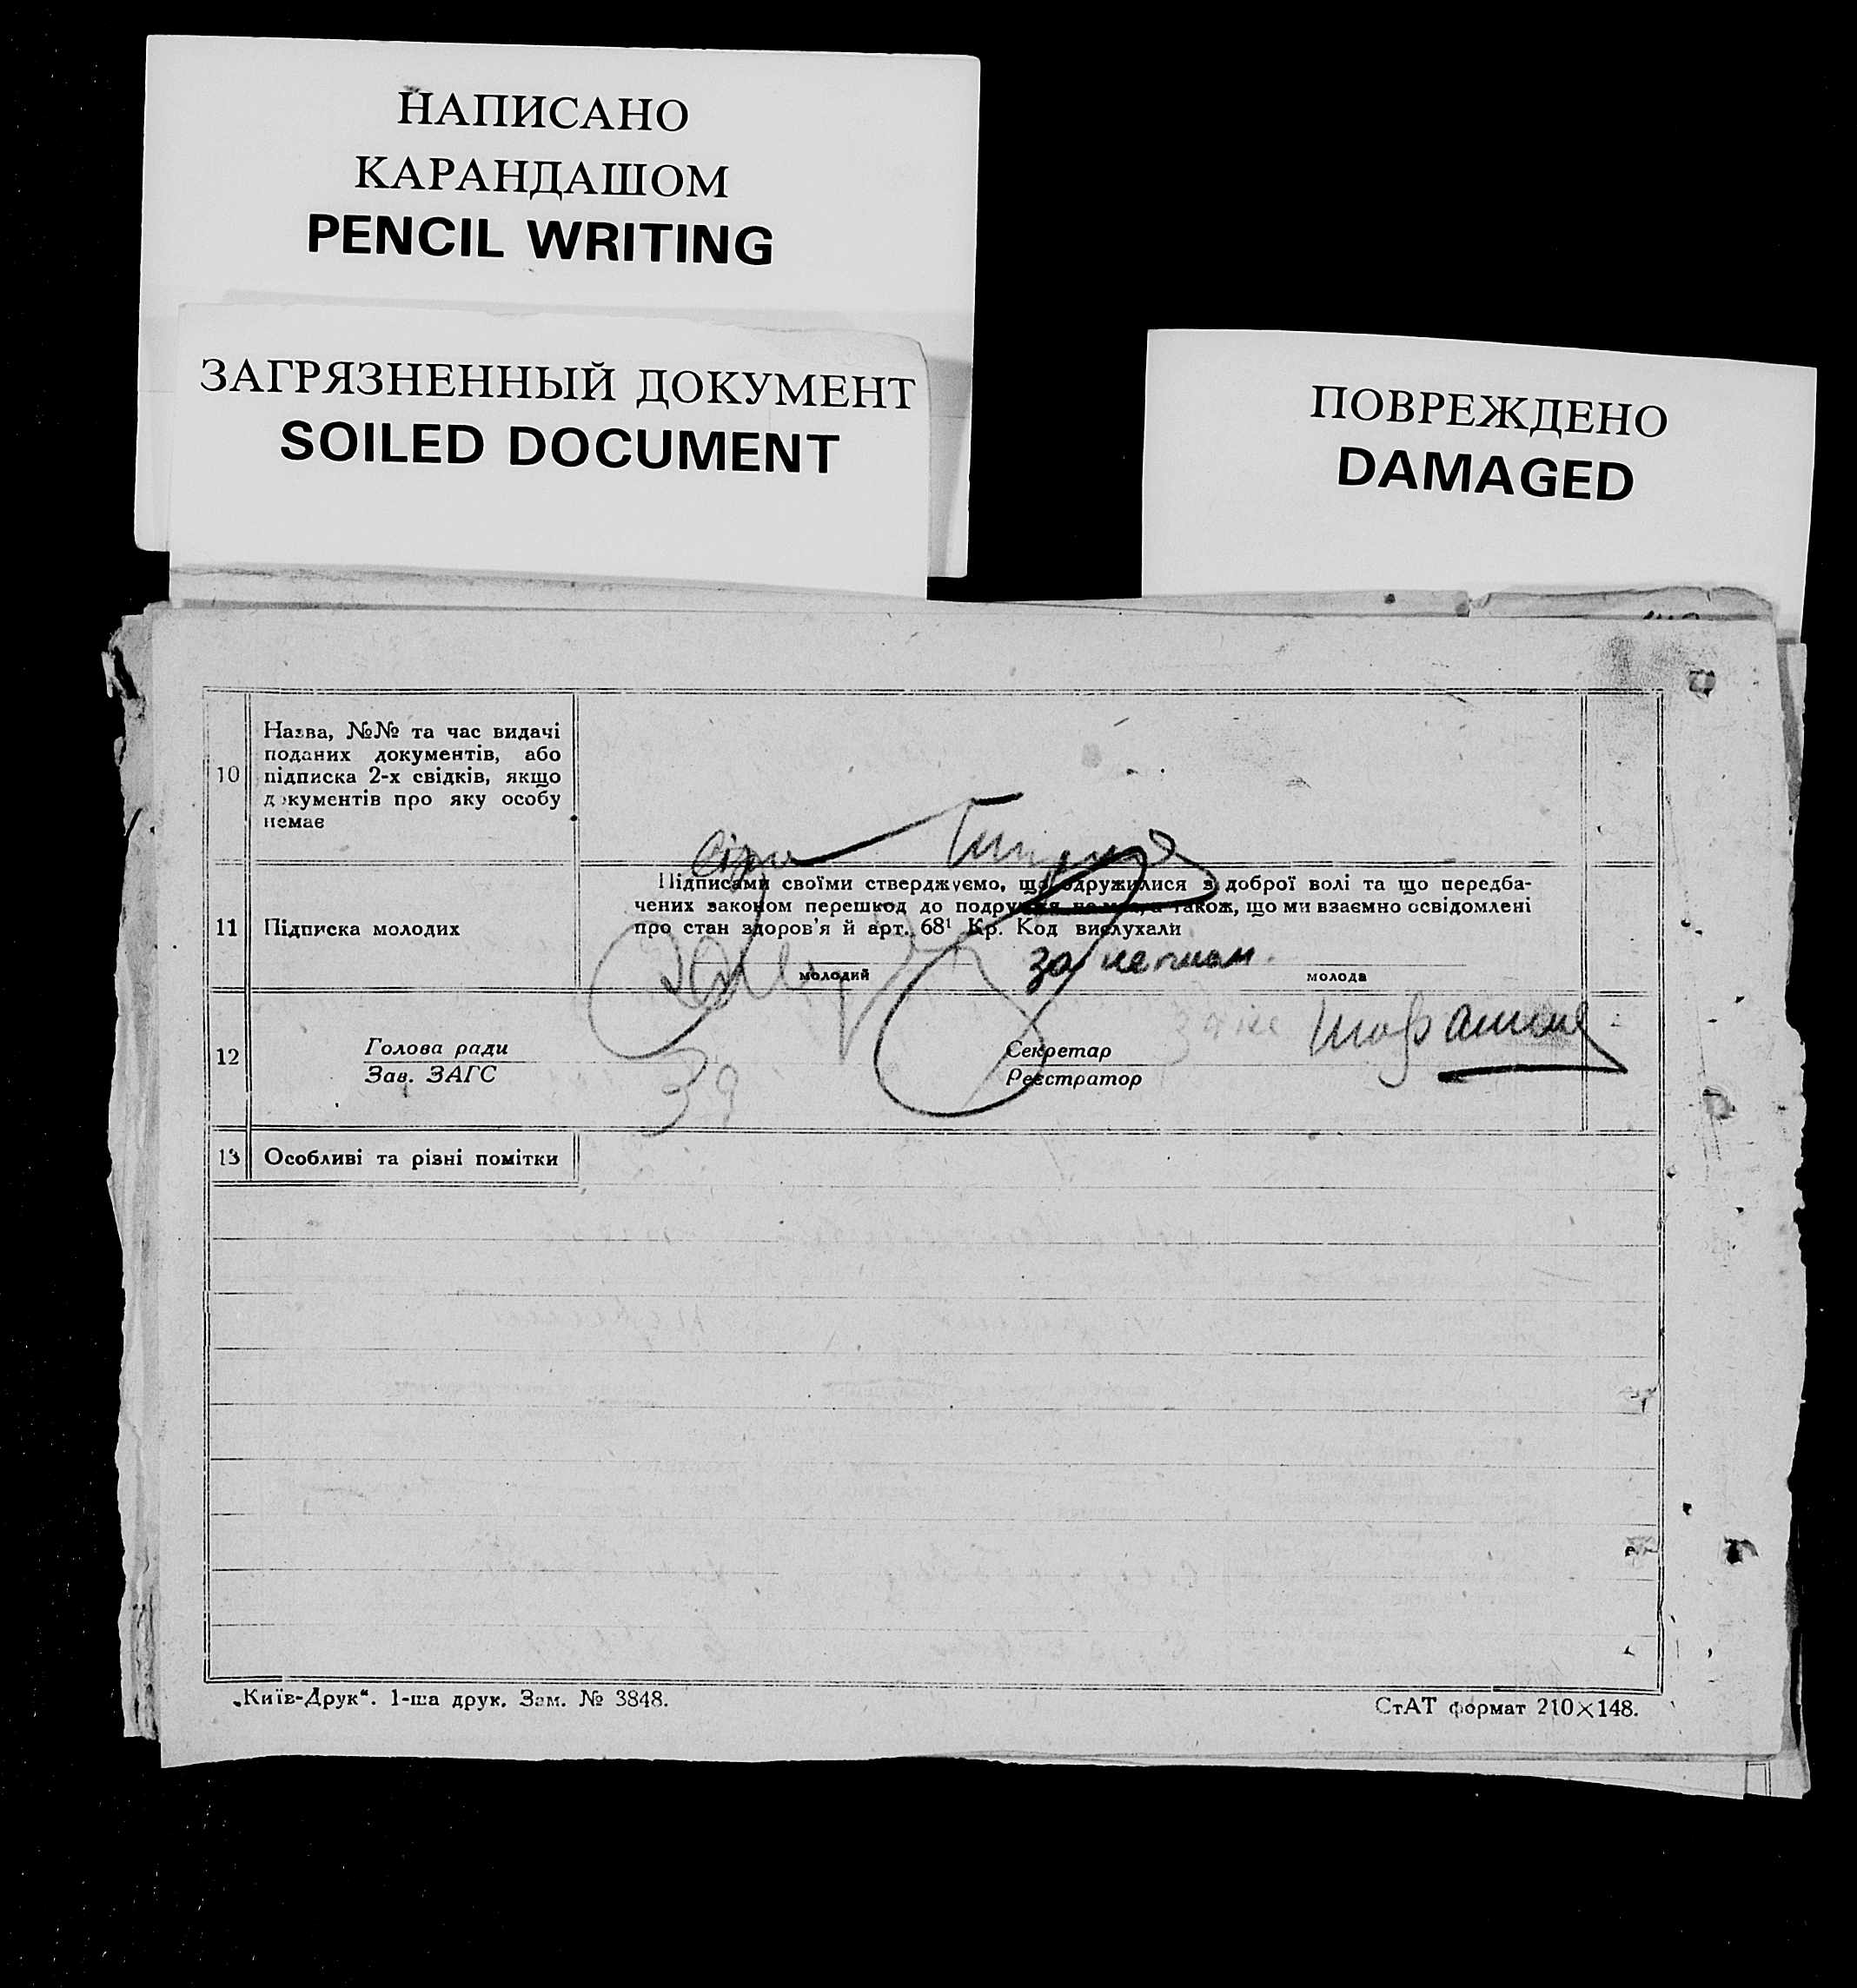 НАПИСАНО
КАРАНДАШОМ
PENCIL WRITING
ЗАГРЯЗНЕННЫЙ ДОКУМЕНТ
SOILED DOCUMENT
ПОВРЕЖДЕНО
DAMAGED
10
Назва, №№ та час видачі
поданих документів, або
підписка 2-х свідків, якщо
документів про яку особу
немає
11
Підписка молодих
Підписами своїми стверджуємо, що одружилися з доброї волі та що передба-
чених законом перешкод до подружжя немає, а також, що ми взаємно освідомлені
про стан здоров'я й арт. 68¹ Кр. Код вислухали
молодий
молода
12
Голова ради
Зав. ЗАГС
Секретар
Реєстратор
39
13
Особливі та різні помітки
„Київ-Друк“. 1-ша друк. Зам. № 3848.
СтАТ формат 210×148.